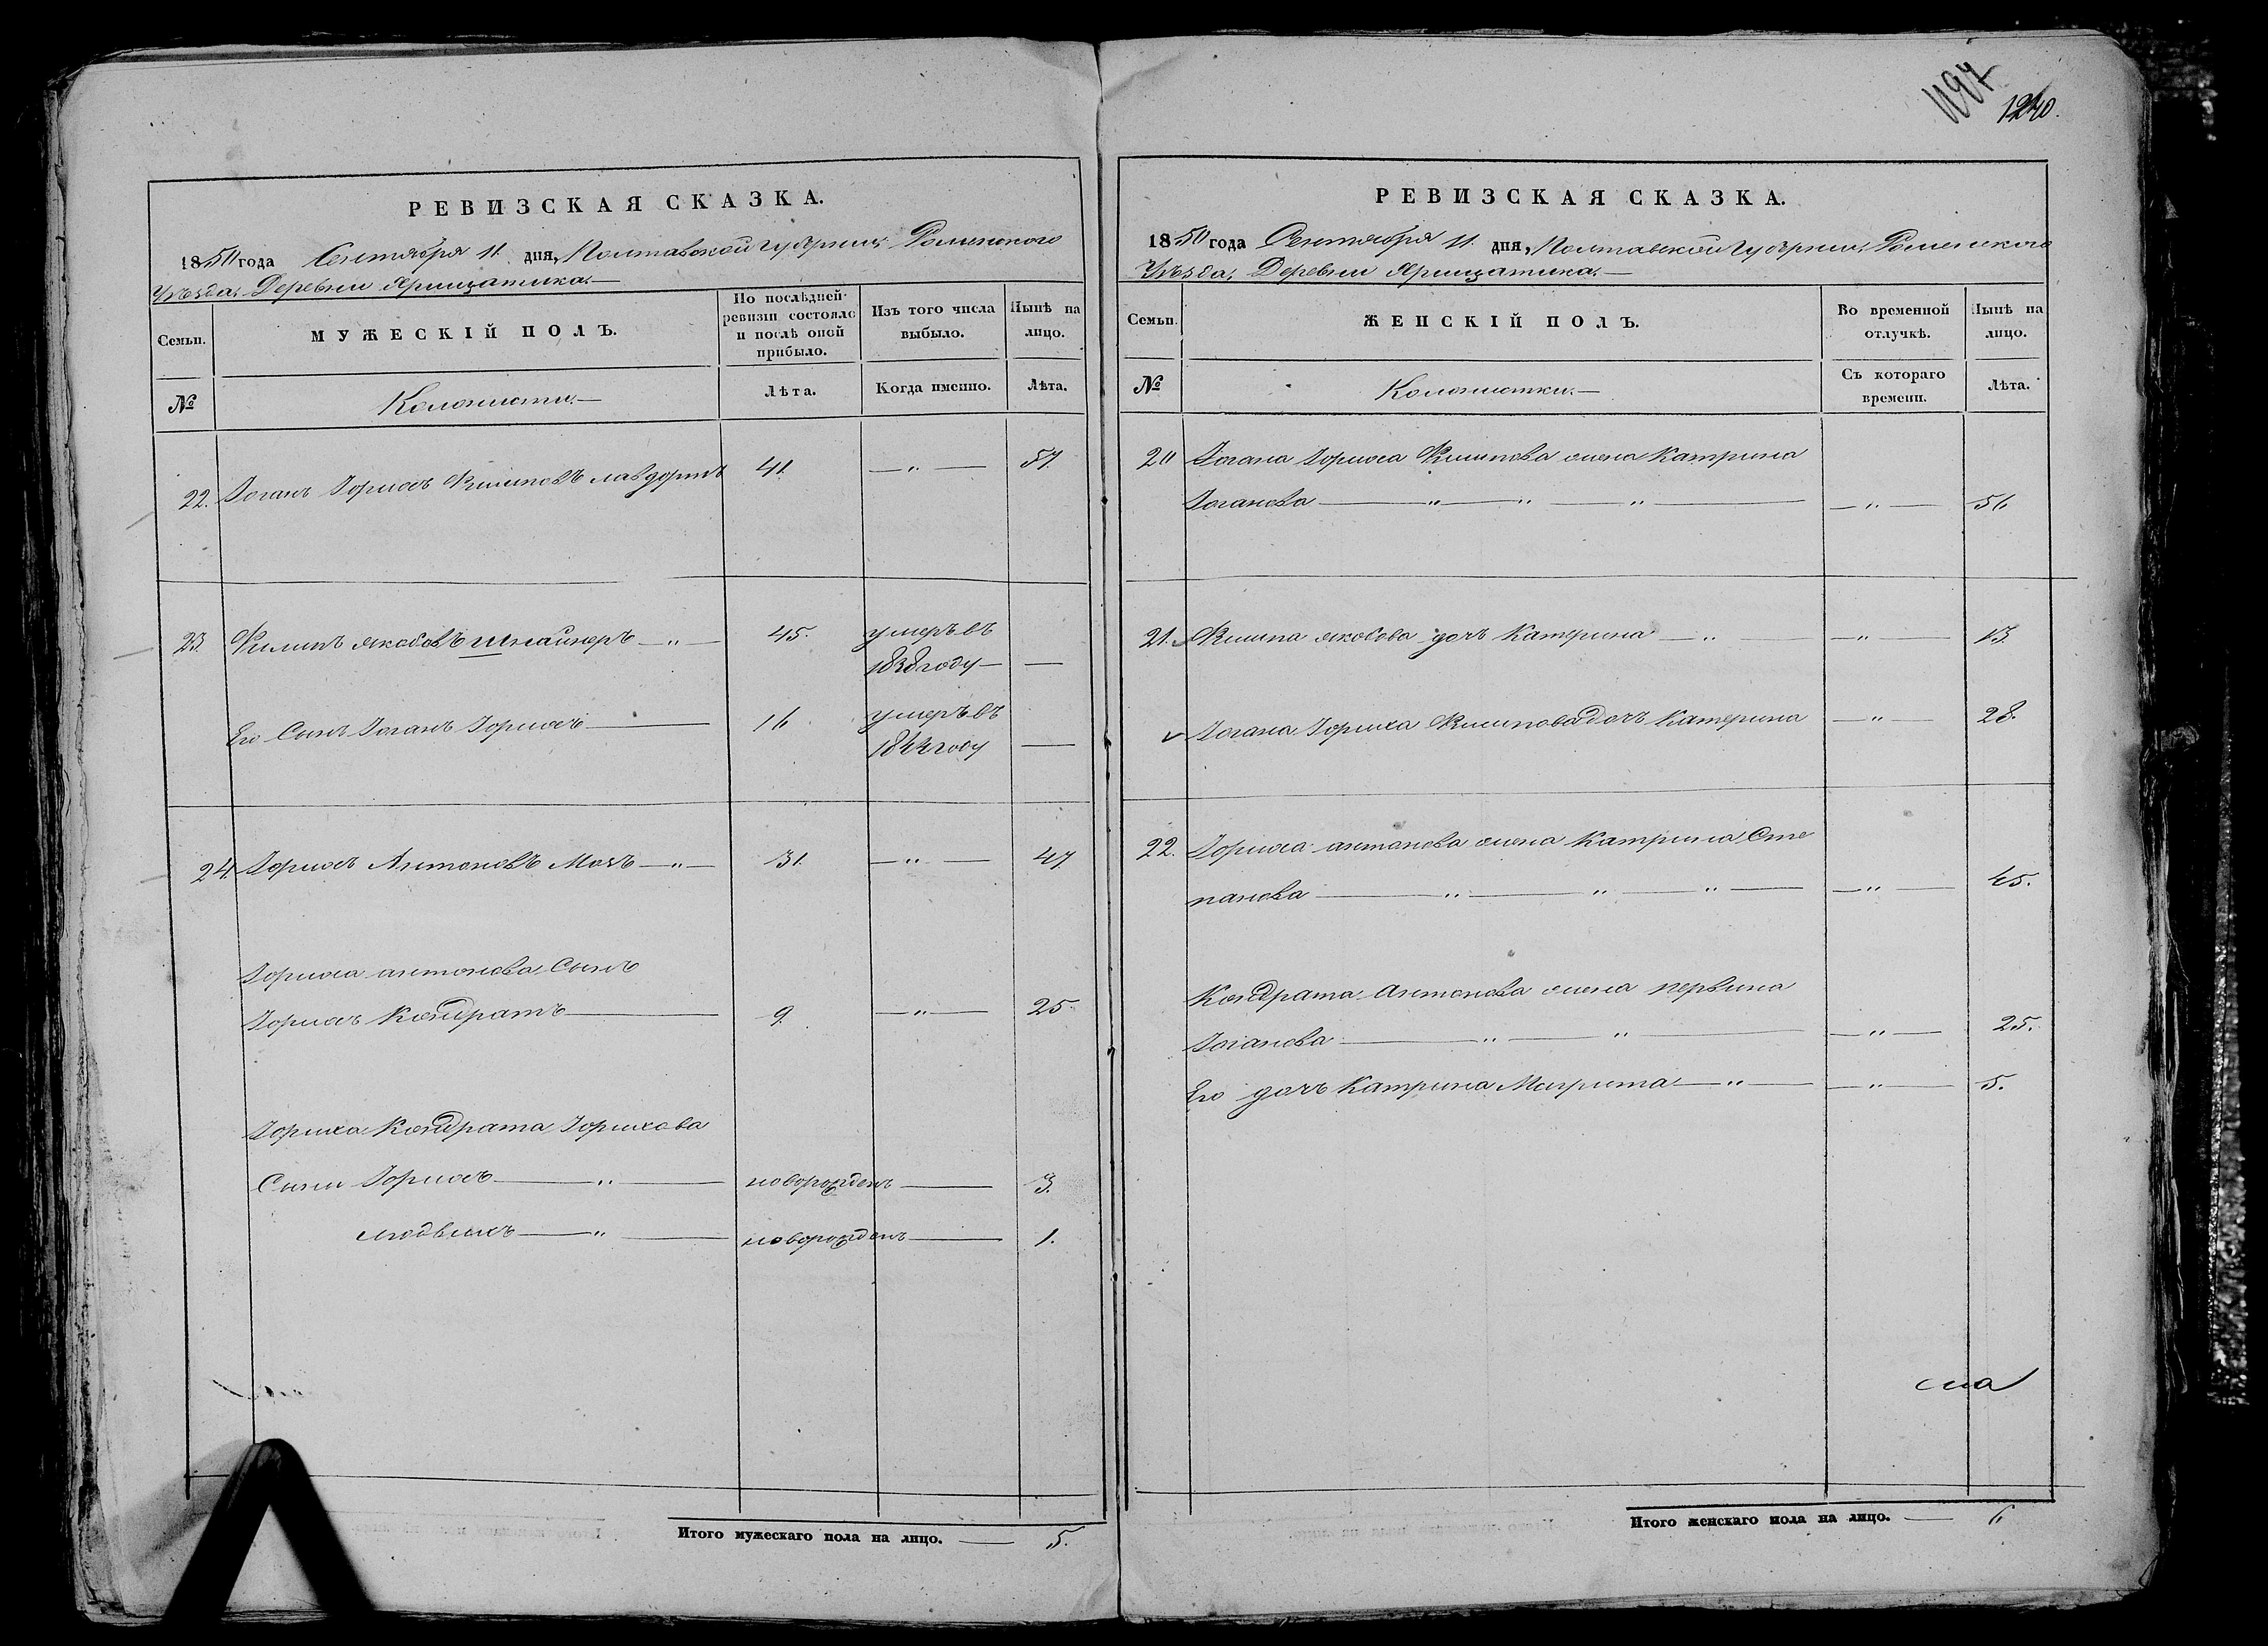 1197
1240.
РЕВИЗСКАЯ СКАЗКА.
1850 года Сентября 11 дня, Полтавской губернии Роменского
Уѣзда, Деревни
Семьи.
МУЖЕСКІЙ ПОЛЪ.
По послѣдней
ревизіи состояло
и послѣ оной
прибыло.
Изъ того числа
выбыло.
Нынѣ на
лицо.
№
Колонисты.—
Лѣта.
Когда именно.
Лѣта.
22. Іоганъ Горихъ Филиповъ 41. —"— 57.
23. Филипъ якобовъ шнайнеръ —"— 45. умеръ въ
1838 году — —
Его Сынъ Іоганъ Горихъ — 16 умеръ въ
1844 году —
24. Горихъ Антоновъ —"— 31. —"— 47
Гориха антонова Сынъ
Горихъ Кондратъ — 9. —"— 25
Гориха Кондрата Горихова
Сыни Горихъ —"— новорожденъ — 3.
людвихъ —"— новорожденъ — 1.
Итого мужескаго пола на лицо. — 5.
РЕВИЗСКАЯ СКАЗКА.
1850 года Сентября 11 дня, Полтавской губернии Роменского
Уѣзда, Деревни
Семьи.
ЖЕНСКІЙ ПОЛЪ.
Во временной
отлучкѣ.
Нынѣ на
лицо.
№
Колонистки.—
Съ котораго
времени.
Лѣта.
20 Іогана Гориха Филипова жена Катрина
Іоганова —"—"—"— —"— 56
21. Филипа якобова дочь Катерина —"— —"— 13.
Іогана Гориха Филипова дочь Катерина —"— 28.
22. Гориха антонова жена Катрина Сте
панова —"—"—"— —"— 45.
Кондрата Антонова жена
Іоганова —"—"— —"— 25.
Его дочь Катрина Магрита —"— —"— 5.
Итого женскаго пола на лицо. — 6